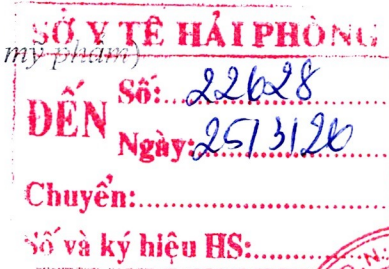 SỞ Y TẾ HẢI PHÒNG
mỹ phẩm)
ĐẾN
Số: 22628
Ngày: 25/3/26
Chuyển:
Số và ký hiệu HS: